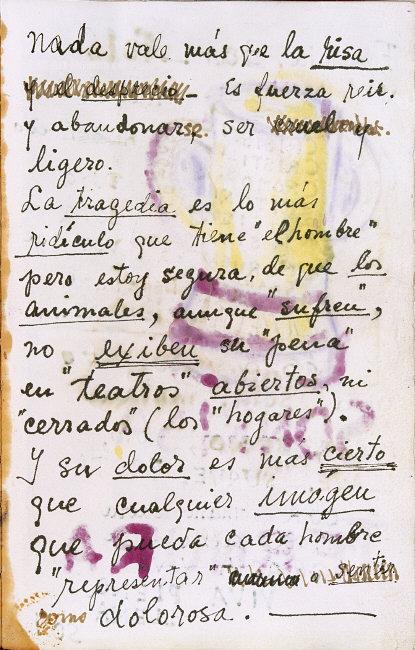 Nada vale más que la risa
y el desprecio_ Es fuerza reir.
y abandonarse. ser cruel y
ligero.
La tragedia es lo más
ridículo que tiene "el hombre"
pero estoy segura, de que los
animales, aunque "sufren",
no exiben su "pena"
en "teatros" abiertos, ni
"cerrados" (los "hogares").
Y su dolor es más cierto
que cualquier imagen
que pueda cada hombre
"representar" o sentir
como dolorosa.